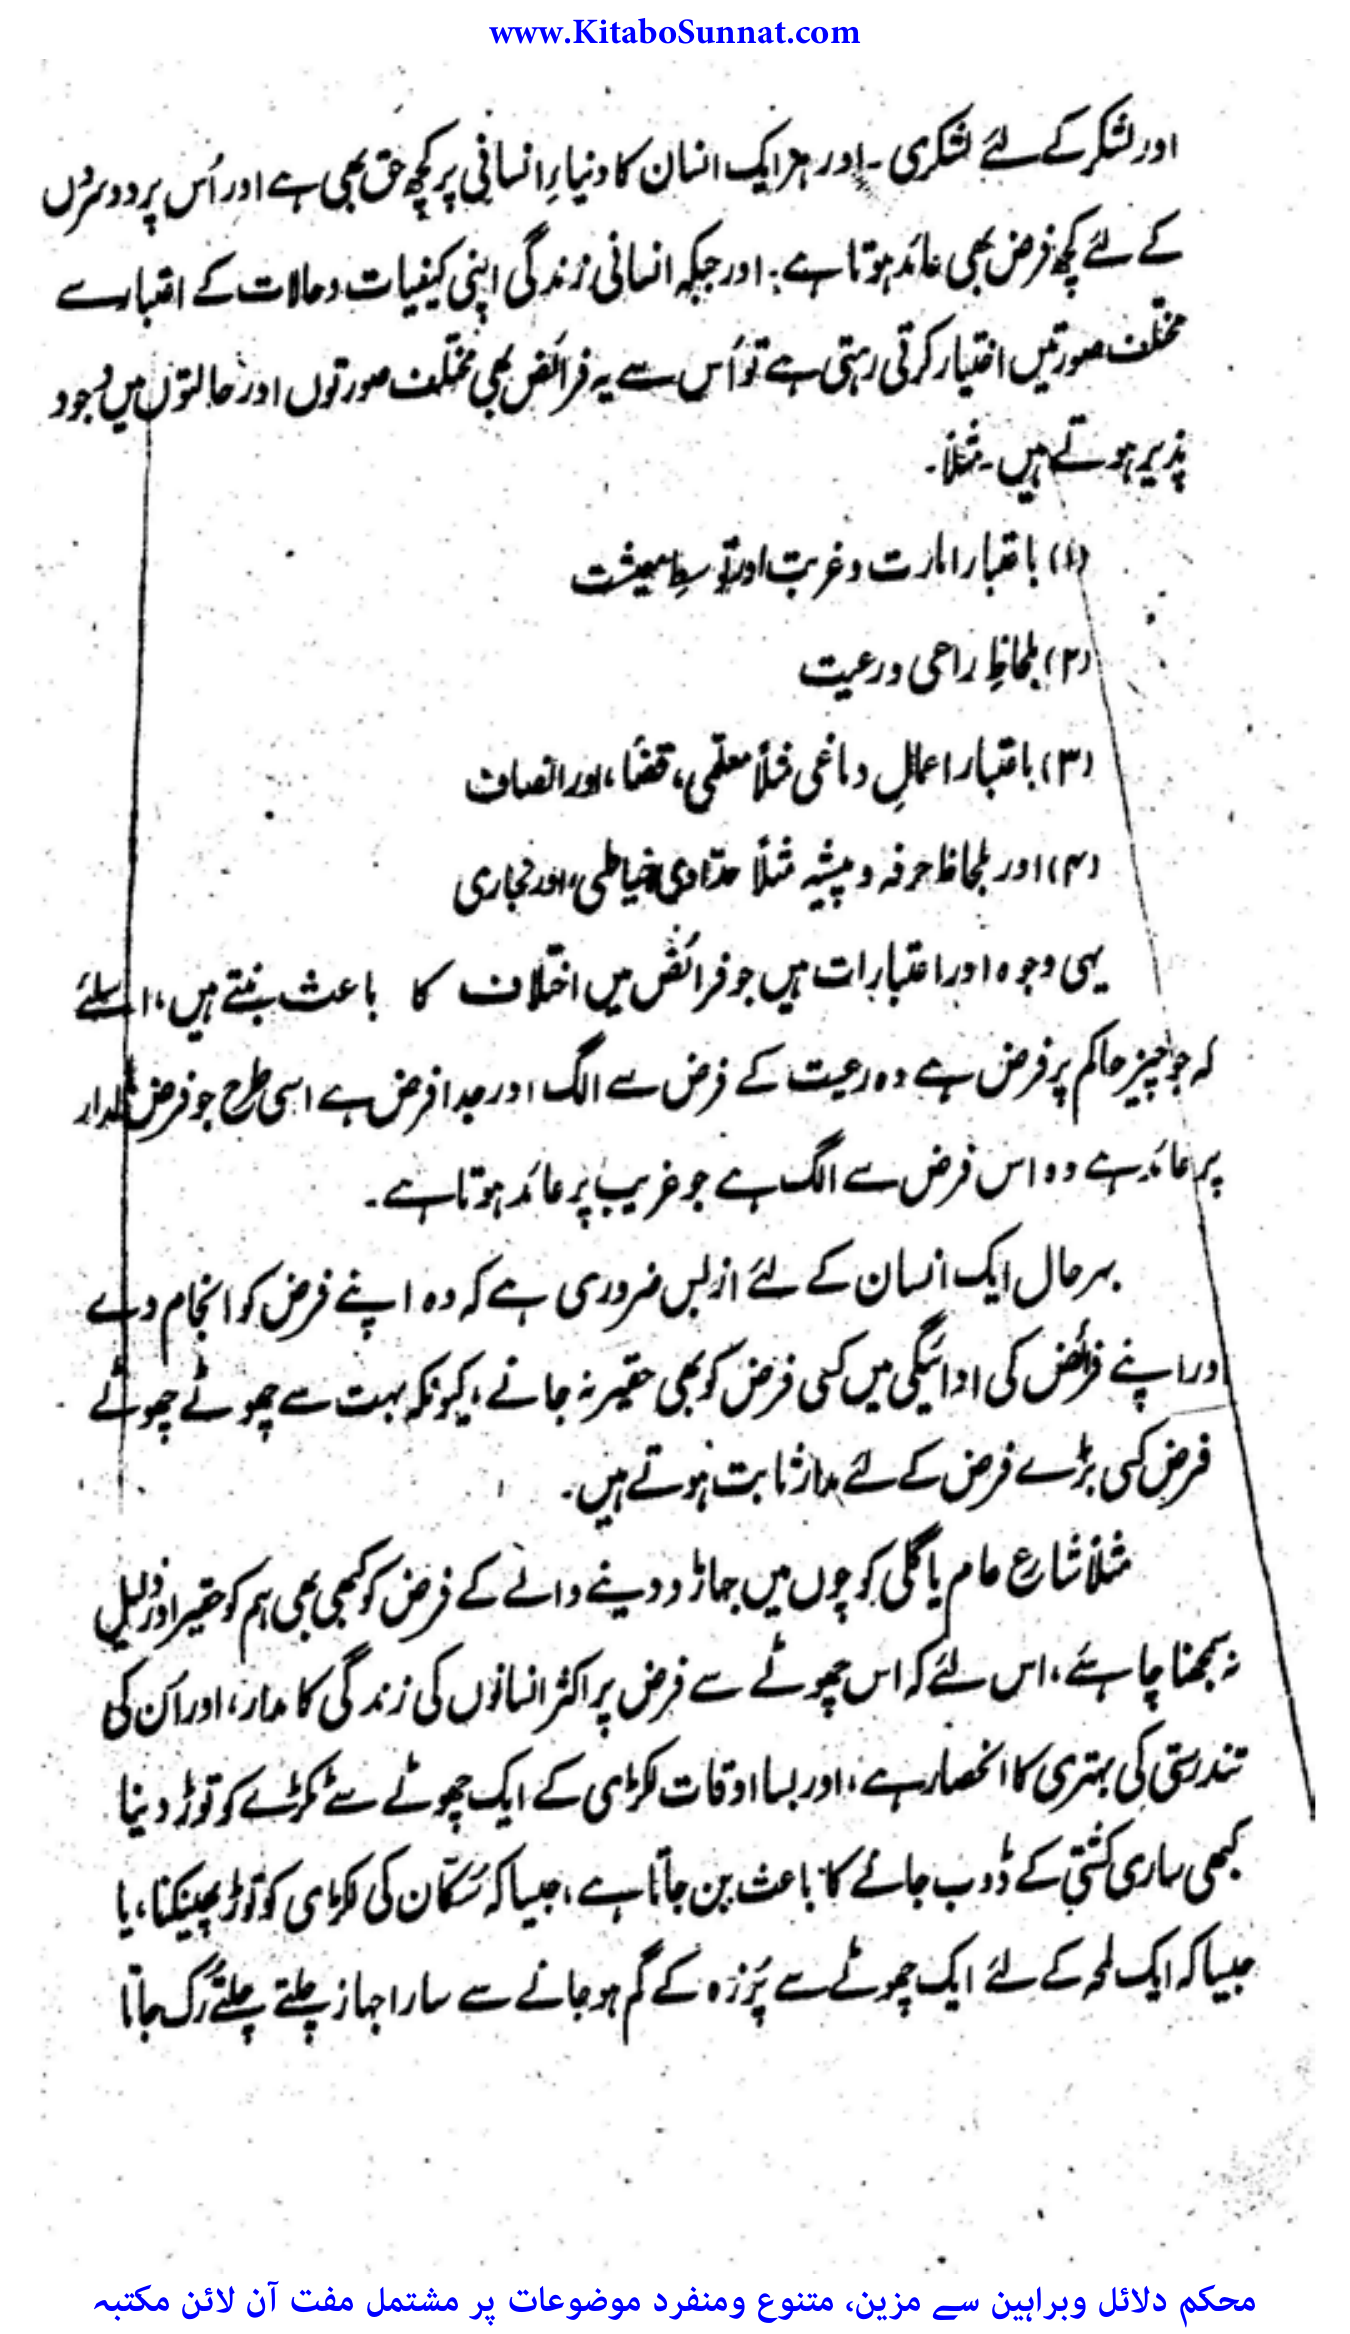 www.KitaboSunnat.com
اور لشکر کے لئے لشکری ۔ اور ہر ایک انسان کا دنیاءِ انسانی پر کچھ حق بھی ہے اور اُس پر دوسروں
کے لئے کچھ فرض بھی عائد ہوتا ہے۔ اور جبکہ انسانی زندگی اپنی کیفیات وحالات کے اعتبار سے
مختلف صورتیں اختیار کرتی رہتی ہے تو اُس سے یہ فرائض بھی مختلف صورتوں اور حالتوں میں وجود
پذیر ہوتے ہیں۔ مثلاً۔
(۱) باعتبار امارت وغربت اور توسطِ معیشت
(۲) بلحاظِ راعی ورعیت
(۳) باعتبار اعمالِ دماغی مثلاً معلمی، قضا، اور انصاف
(۴) اور بلحاظ حرفہ وپیشہ مثلاً حدّادی، خیاطی، اور نجاری
یہی وجوہ اور اعتبارات ہیں جو فرائض میں اختلاف کا باعث بنتے ہیں، اسلئے
کہ جو چیز حاکم پر فرض ہے وہ رعیت کے فرض سے الگ اور جدا فرض ہے اسی طرح جو فرض مالدار
پر عائد ہے وہ اس فرض سے الگ ہے جو غریب پر عائد ہوتا ہے۔
بہرحال ایک انسان کے لئے ازبس ضروری ہے کہ وہ اپنے فرض کو انجام دے
اور اپنے فرائض کی ادائیگی میں کسی فرض کو بھی حقیر نہ جانے، کیونکہ بہت سے چھوٹے چھوٹے
فرض کسی بڑے فرض کے لئے مدار ثابت ہوتے ہیں۔
مثلاً شارع عام یا گلی کوچوں میں جھاڑو دینے والے کے فرض کو کبھی بھی ہم کو حقیر اور ذلیل
نہ سمجھنا چاہئے، اس لئے کہ اس چھوٹے سے فرض پر اکثر انسانوں کی زندگی کا مدار، اور اُن کی
تندرستی کی بہتری کا انحصار ہے، اور بسا اوقات لکڑی کے ایک چھوٹے سے ٹکڑے کو توڑ دینا
کبھی ساری کشتی کے ڈوب جانے کا باعث بن جاتا ہے، جیسا کہ سُکّان کی لکڑی کو توڑ پھینکنا، یا
جیسا کہ ایک لمحہ کے لئے ایک چھوٹے سے پُرزہ کے گم ہو جانے سے سارا جہاز چلتے چلتے رُک جاتا
محکم دلائل وبراہین سے مزین، متنوع ومنفرد موضوعات پر مشتمل مفت آن لائن مکتبہ